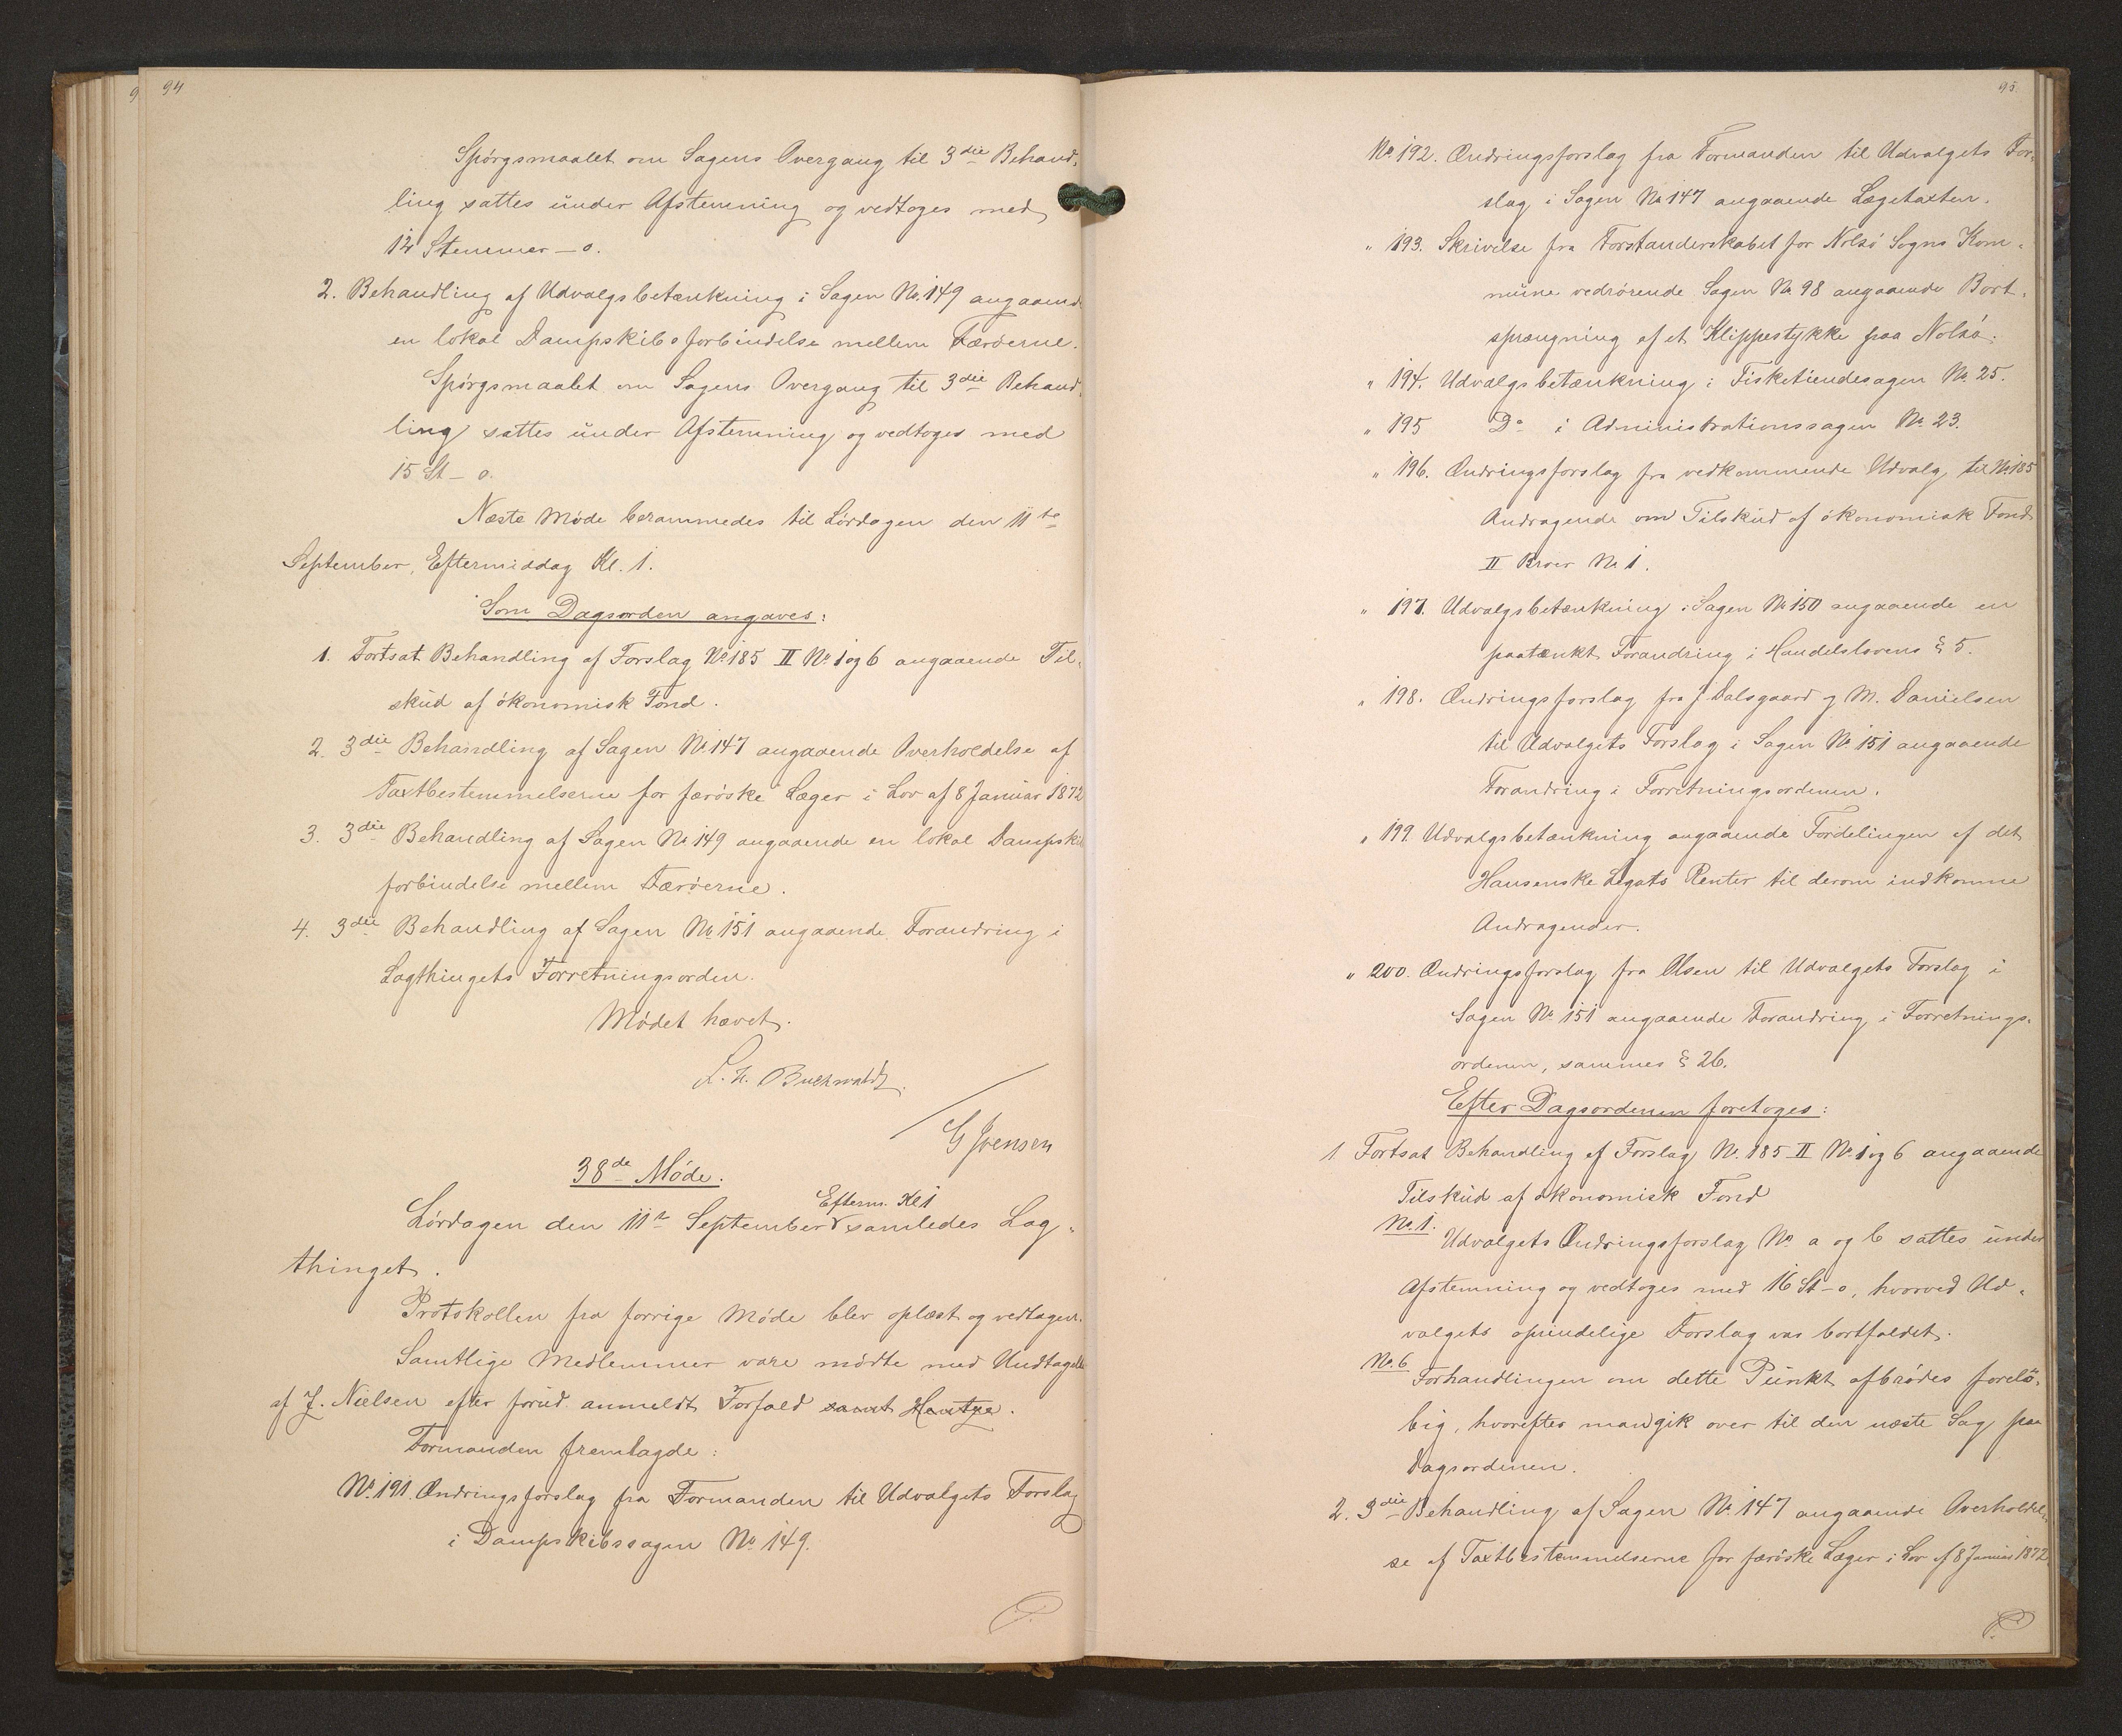 94
Spörgsmaalet om Sagens Overgang til 3die Behand-
ling sattes under Afstemning og vedtoges med
12 Stemmer – 0.
2. Behandling af Udvalgsbetænkning i Sagen No. 149 angaaende
en lokal Dampskibsforbindelse mellem Færöerne.
Spörgsmaalet om Sagens Overgang til 3die Behand-
ling sattes under Afstemning og vedtoges med
15 St – 0.
Næste Möde berammedes til Lördagen den 11te
September, Eftermiddag Kl. 1.
Som Dagsorden angaves:
1. Fortsat Behandling af Forslag No 185 II No 1 og 6 angaaende Til-
skud af ökonomisk Fond.
2. 3die Behandling af Sagen No 147 angaaende Overholdelse af
Taxtbestemmelserne for færöske Læger i Lov af 8 Januar 1872
3. 3die Behandling af Sagen No 149 angaaende en lokal Dampskibs
forbindelse mellem Færöerne.
4. 3die Behandling af Sagen No 151 angaaende Forandring i
Lagthingets Forretningsorden.
Mödet hævet.
L. H. Buchwaldt.
G Ivensen
38de Möde.
Efterm. Kl 1
Lördagen den 11te September samledes Lag-
thinget.
Protokollen fra forrige Möde blev oplæst og vedtagen.
Samtlige Medlemmer vare mödte med Undtagelse
af J. Nielsen efter forud anmeldt Forfald samt Hentze.
Formanden fremlagde:
No. 191. Ændringsforslag fra Formanden til Udvalgets Forslag
i Dampskibssagen No 149.
95.
No 192. Ændringsforslag fra Formanden til Udvalgets For-
slag i Sagen No 147 angaaende Lægetaxten.
" 193. Skrivelse fra Forstanderskabet for Nolsö Sogns Kom-
mune vedrörende Sagen No 98 angaaende Bort-
sprængning af et Klippestykke paa Nolsö.
" 194. Udvalgsbetænkning i Fisketiendesagen No. 25.
" 195 Do i Administrationssagen No. 23.
" 196. Ændringsforslag fra vedkommende Udvalg til No. 185
Andragende om Tilskud af ökonomisk Fond
II Broer No 1.
" 197. Udvalgsbetænkning i Sagen No 150 angaaende en
paatænkt Forandring i Handelslovens § 5.
" 198. Ændringsforslag fra J. Dalsgaard og M. Danielsen
til Udvalgets Forslag i Sagen No 151 angaaende
Forandring i Forretningsordenen.
" 199. Udvalgsbetænkning angaaende Fordelingen af det
Hansenske Legats Renter til derom indkomne
Andragender.
" 200. Ændringsforslag fra Olsen til Udvalgets Forslag i
Sagen No 151 angaaende Forandring i Forretnings-
ordenen, sammes § 26.
Efter Dagsordenen foretoges:
1 Fortsat Behandling af Forslag No. 185 II No 1 og 6 angaaende
Tilskud af ökonomisk Fond
No. 1.
Udvalgets Ændringsforslag No a og b sattes under
Afstemning og vedtoges med 16 St – 0, hvorved Ud-
valgets oprindelige Forslag var bortfaldet.
No. 6
Forhandlingen om dette Punkt afbrödes forelö-
big, hvorefter man gik over til den næste Sag paa
Dagsordenen.
2. 3die Behandling af Sagen No. 147 angaaende Overholdel-
se af Taxtbestemmelserne for færöske Læger i Lov af 8 Januar 1872